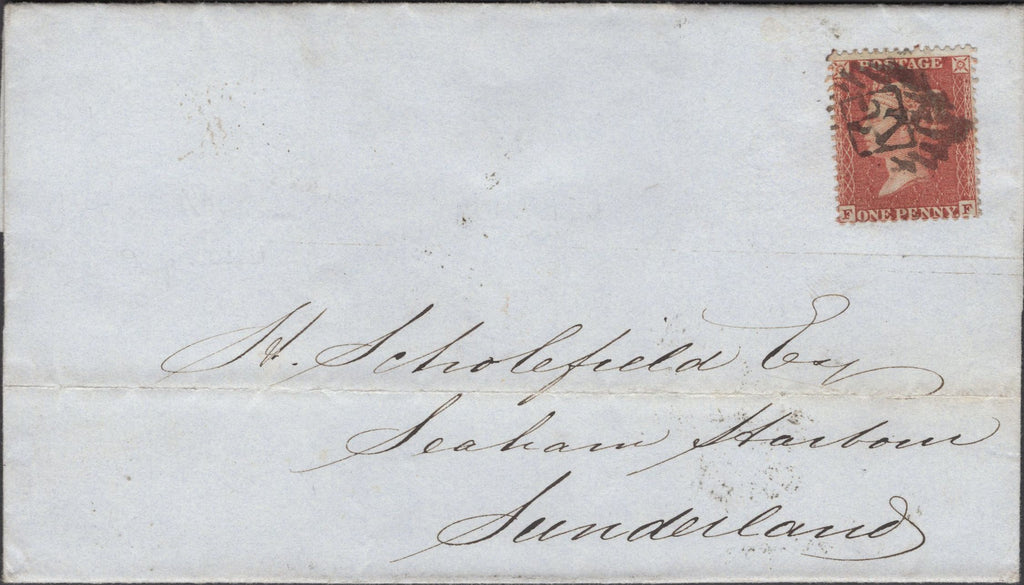 POSTAGE
F ONE PENNY F
H. Scholefield Esq
Seaham Harbour
Sunderland